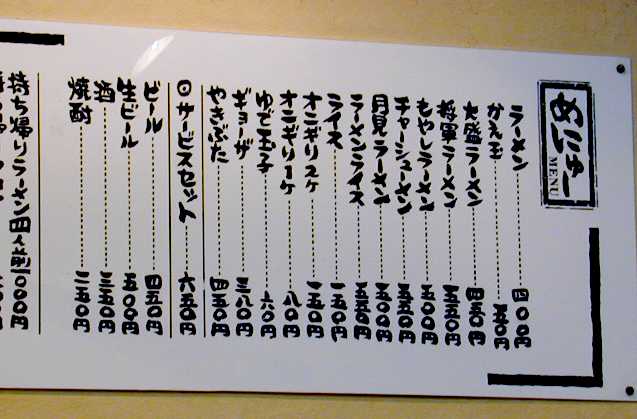 めにゅー
MENU
ラーメン 四〇〇円
かえ玉
大盛ラーメン 四五〇円
将軍ラーメン 五五〇円
もやしラーメン 五〇〇円
チャーシューメン 五五〇円
月見ラーメン 五〇〇円
ラーメンライス 五五〇円
ライス 一五〇円
オニギリ2ケ 一五〇円
オニギリ1ケ 八〇円
ゆで玉子 六〇円
ギョーザ 三八〇円
やきぶた 四五〇円
◎サービスセット 六五〇円
ビール 四五〇円
生ビール 五〇〇円
酒 三五〇円
焼酎 二五〇円
持ち帰りラーメン四人前1000円